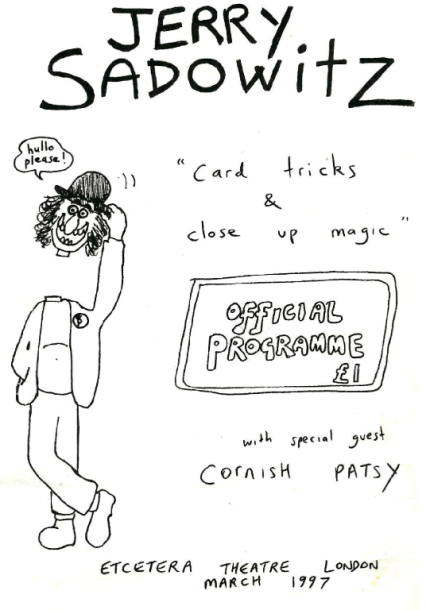 JERRY
SADOWITZ
hullo
please!
"Card tricks
&
close up magic"
OFFICIAL
PROGRAMME
£1
with special guest
CORNISH PATSY
ETCETERA THEATRE LONDON
MARCH 1997